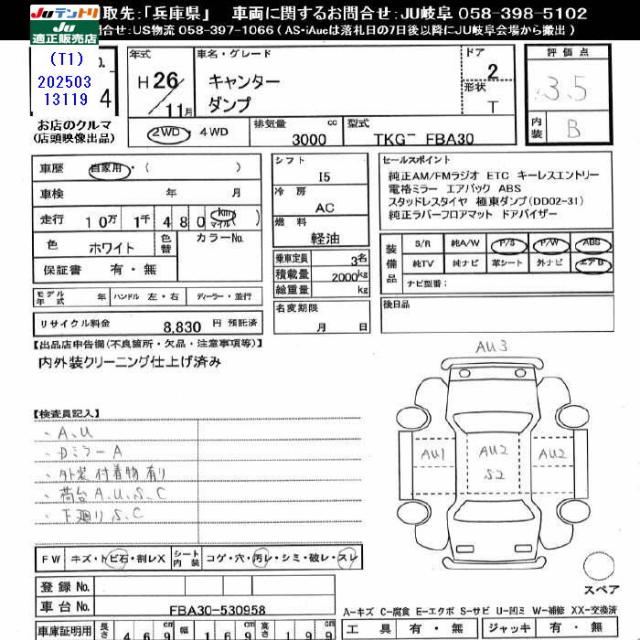 Juテントリ
Ju
適正販売店
取先:「兵庫県」 車両に関するお問合せ:JU岐阜 058-398-5102
お問合せ:US物流 058-397-1066（AS・iAucは落札日の7日後以降にJU岐阜会場から搬出）
(T1)
202503
13119
No.
4
お店のクルマ
(店頭映像出品)
年式
H 26
11月
車名・グレード
キャンター
ダンプ
ドア
2
形状
T
評価点
3.5
内装
B
2WD 4WD
排気量 cc
3000
型式
TKG- FBA30
車歴 自家用・( )
車検 年 月
走行 10万 1千 480 km マイル
色 ホワイト 色替 カラーNo.
保証書 有・無
モデル年式 年 ハンドル 左・右 ディーラー・並行
リサイクル料金 8,830 円 預託済
シフト
I5
冷房
AC
燃料
軽油
乗車定員 3名
積載量 2000kg
総重量 kg
名変期限
月 日
セールスポイント
純正AM/FMラジオ ETC キーレスエントリー
電格ミラー エアバック ABS
スタッドレスタイヤ 極東ダンプ(DD02-31)
純正ラバーフロアマット ドアバイザー
装備品
S/R 純A/W P/S P/W ABS
純TV 純ナビ 革シート 外ナビ エアB
ナビ型番:
後日品
【出品店申告欄(不良箇所・欠品・注意事項等)】
内外装クリーニング仕上げ済み
【検査員記入】
・A.U
・DミラーA
・外装付着物有り
・荷台A.U.S.C
・下廻りS.C
AU3
AU1
AU2
S2
AU2
スペア
FW キズ・ト ビ石・割レX シート内装 コゲ・穴・汚レ・シミ・破レ・スレ
登録No.
車台No. FBA30-530958
車庫証明用 長さ 469 幅 169 高さ 199
A-キズ C-腐食 E-エクボ S-サビ U-凹ミ W-補修 XX-交換済
工具 有・無 ジャッキ 有・無